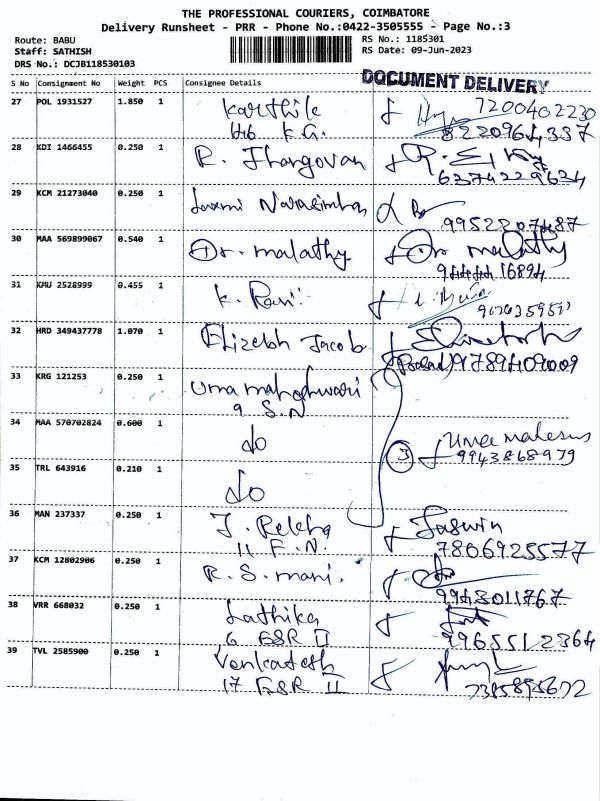 THE PROFESSIONAL COURIERS, COIMBATORE
Delivery Runsheet - PRR - Phone No.:0422-3505555 - Page No.:3
Route: BABU
RS No.: 1185301
Staff: SATHISH
RS Date: 09-Jun-2023
DRS No.: DCJB118530103
DOCUMENT DELIVERY
S No Consignment No Weight PCS Consignee Details
27 POL 1931527 1.850 1 Karthik 7200402230
K.G. 8220964337
28 KDI 1466455 0.250 1 R.
6374229634
29 KCM 21273040 0.250 1 Laxmi Narasimhan
9952207487
30 MAA 569899067 0.540 1 Dr. malathy Dr malathy
16894
31 KMU 2528999 0.455 1 K. Ravi
32 HRD 349437778 1.070 1 Jacob
9789409009
33 KRG 121253 0.250 1 Uma maheshwari
9 S.N
34 MAA 570702824 0.600 1 do 3
9943868979
35 TRL 643916 0.210 1 do
36 MAN 237337 0.250 1 J. Rekha Jaswin
11 F.N. 7806925577
37 KCM 12802906 0.250 1 R.S. mani.
9943011767
38 VRR 668032 0.250 1 Lathika
6 GSR II 9965512364
39 TVL 2585900 0.250 1 Venkatesh
17 GSR II